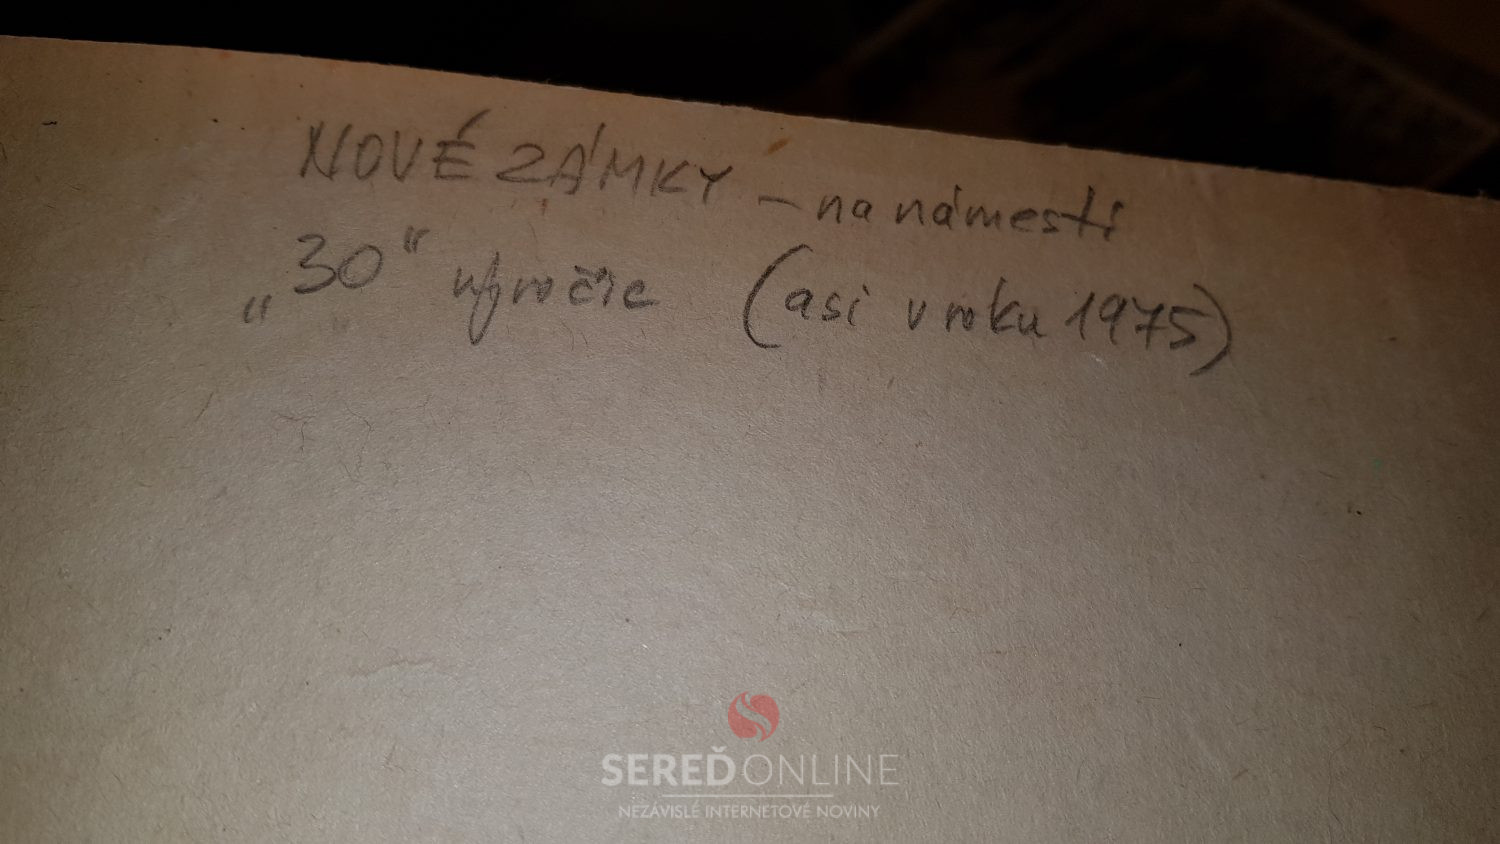 NOVÉ ZÁMKY – na námestí
„30“ výročie (asi v roku 1975)
SEREĎONLINE
NEZÁVISLÉ INTERNETOVÉ NOVINY